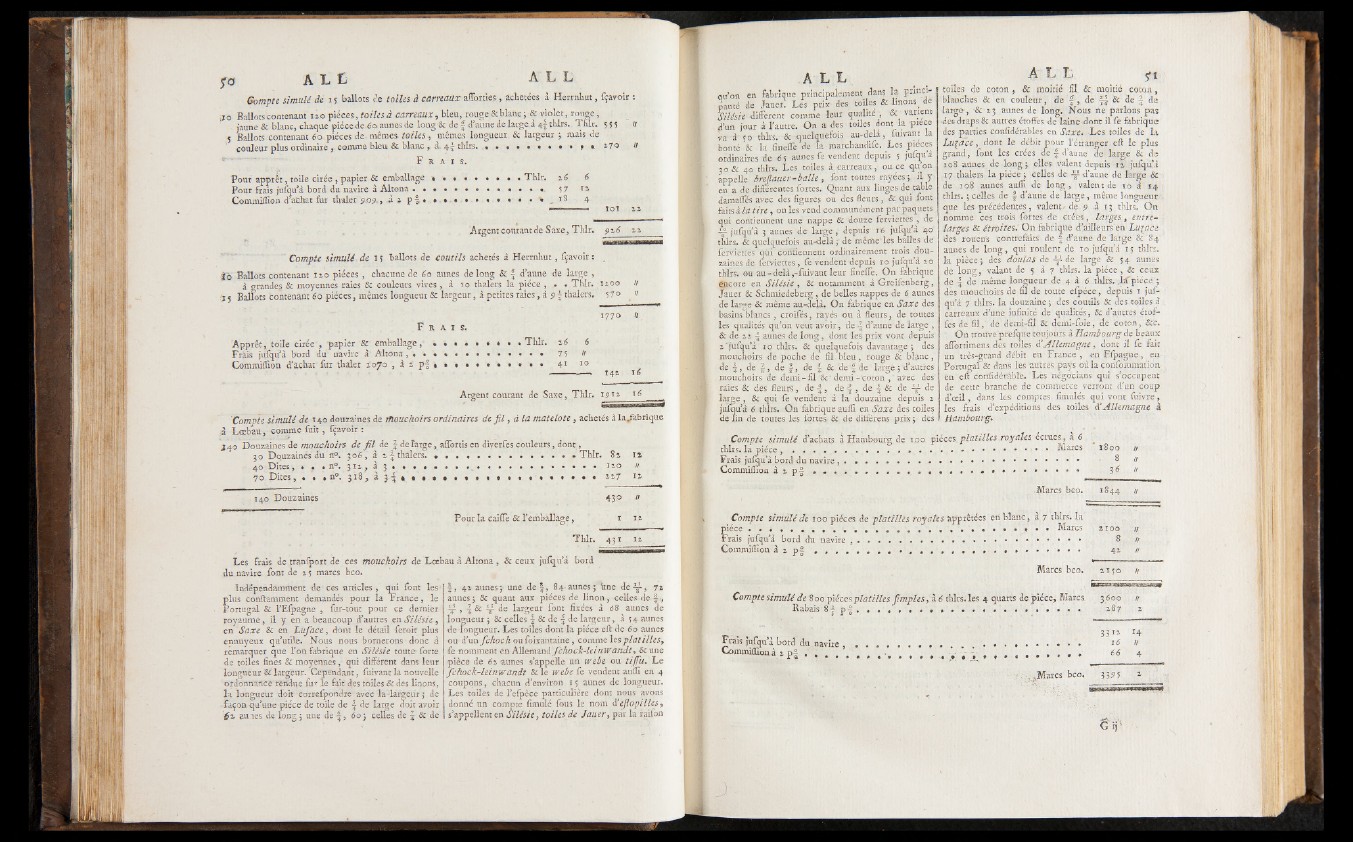 50 ALL ALL
Compte simulé de 15 ballots de toiles à carreaux assorties, achetées à Herrnhut, sçavoir :
10 Ballots contenant 120 piéces, toiles à carreaux, bleu, rouge & blanc ; & violet, rouge,
jaune & blanc, chaque piéce de 60 aunes de long & de d'aune de large à 4½ thlrs. Thlr. 555 "
5 Ballots contenant 60 piéces de mêmes toiles, mêmes longueur & largeur ; mais de
couleur plus ordinaire, comme bleu & blanc, à 4½ thlrs. 270 "
FRAIS.
Pour apprêt, toile cirée, papier & emballage Thlr. 26 6
Pour frais jusqu'à bord du navire à Altona 57 12
Commission d'achat sur thaler 909, à 2 p 18 4
101 22
Argent courant de Saxe, Thlr. 926 22
Compte simulé de 15 ballots de coutils achetés à Herrnhut, sçavoir :
10 Ballots contenant 120 piéces, chacune de 60 aunes de long & d'aune de large,
à grandes & moyennes raies & couleurs vives, à 10 thalers la piéce, . . Thlr. 1200 "
15 Ballots contenant 60 piéces, mêmes longueur & largeur, à petites raies, à 9½ thalers. 570 "
1770 "
FRAIS.
Apprêt, toile cirée, papier & emballage, Thlr. 26 6
Frais jusqu'à bord du navire à Altona, 75 "
Commission d'achat sur thaler 2070, à 2 p 41 10
142 16
Argent courant de Saxe, Thlr. 1912 16
Compte simulé de 140 douzaines de mouchoirs ordinaires de fil, à la matelote, achetés à la fabrique
à Lœbau, comme suit, sçavoir :
140 Douzaines de mouchoirs de fil de de large, assortis en diverses couleurs, dont,
30 Douzaines du nº. 306, à 2 thalers. Thlr. 82 12
40 Dites, . . . nº. 312, à 3 120 "
70 Dites, . . . nº. 318, à 3¼ 227 12
140 Douzaines 430 "
Pour la caisse & l'emballage, 1 12
Thlr. 431 12
Les frais de transport de ces mouchoirs de Lœbau à Altona, & ceux jusqu'à bord
du navire sont de 25 marcs bco.
Indépendamment de ces articles, qui sont les
plus constamment demandés pour la France, le
Portugal & l'Espagne, sur-tout pour ce dernier
royaume, il y en a beaucoup d'autres en Silésie,
en Saxe & en Lusace, dont le détail seroit plus
ennuyeux qu'utile. Nous nous bornerons donc à
remarquer que l'on fabrique en Silésie toute sorte
de toiles fines & moyennes, qui différent dans leur
longueur & largeur. Cependant, suivant la nouvelle
ordonnance rendue sur le fait des toiles & des linons,
la longueur doit correspondre avec la largeur ; de
façon qu'une piéce de toile de de large doit avoir
62 aunes de long ; une de , 60 ; celles de & de
, 42 aunes ; une de , 84 aunes ; une de , 72
aunes ; & quant aux piéces de linon, celles de ,
, & de largeur sont fixées à 68 aunes de
longueur ; & celles & de de largeur, à 54 aunes
de longueur. Les toiles dont la piéce est de 60 aunes
ou d'un schock ou soixantaine, comme les platilles,
se nomment en Allemand schock-leinwandt, & une
piéce de 62 aunes s'appelle un webe ou tissu. Le
schock-leinwandt & le webe se vendent aussi en 4
coupons, chacun d'environ 15 aunes de longueur.
Les toiles de l'espéce particuliére dont nous avons
donné un compte simulé sous le nom d'estopilles,
s'appellent en Silésie, toiles de Jauer, par la raison
ALL ALL 51
qu'on en fabrique principalement dans la princi-
pauté de Jauer. Les prix des toiles & linons de
Silésie différent comme leur qualité, & varient
d'un jour à l'autre. On a des toiles dont la piéce
va à 50 thlrs. & quelquefois au-delà, suivant la
bonté & la finesse de la marchandise. Les piéces
ordinaires de 65 aunes se vendent depuis 5 jusqu'à
30 & 40 thlrs. Les toiles à carreaux, ou ce qu'on
appelle breslauer-balle, sont toutes rayées ; il y
en a de différentes sortes. Quant aux linges de table
damassés avec des figures ou des fleurs, & qui sont
faits à la tire, on les vend communément par paquets
qui contiennent une nappe & douze serviettes, de
jusqu'à 3 aunes de large, depuis 16 jusqu'à 40
thlrs. & quelquefois au-delà ; de même les balles de
serviettes qui contiennent ordinairement trois dou-
zaines de serviettes, se vendent depuis 10 jusqu'à 20
thlrs. ou au-delà, suivant leur finesse. On fabrique
encore en Silésie, & notamment à Greifenberg,
Jauer & Schmiedeberg, de belles nappes de 6 aunes
de large & même au-delà. On fabrique en Saxe des
basins blancs, croisés, rayés ou à fleurs, de toutes
les qualités qu'on veut avoir, de d'aune de large,
& de 22 aunes de long, dont les prix vont depuis
2 jusqu'à 10 thlrs. & quelquefois davantage ; des
mouchoirs de poche de fil bleu, rouge & blanc,
de , de , de , de & de de large ; d'autres
mouchoirs de demi-fil & demi-coton, avec des
raies & des fleurs, de , de , de & de de
large, & qui se vendent à la douzaine depuis 2
jusqu'à 6 thlrs. On fabrique aussi en Saxe des toiles
de lin de toutes les sortes & de différens prix ; des
toiles de coton, & moitié fil & moitié coton,
blanches & en couleur, de , de & de de
large, & 23 aunes de long. Nous ne parlons pas
des draps & autres étoffes de laine dont il se fabrique
des parties considérables en Saxe. Les toiles de la
Lusace, dont le débit pour l'étranger est le plus
grand, sont les crées de d'aune de large & de
108 aunes de long ; elles valent depuis 12 jusqu'à
17 thalers la piéce ; celles de d'aune de large &
de 108 aunes aussi de long, valent de 10 à 14
thlrs. ; celles de d'aune de large, même longueur
que les précédentes, valent de 9 à 13 thlrs. On
nomme ces trois sortes de crées, larges, entre-
larges & étroites. On fabrique d'ailleurs en Lusace
des rouens contrefaits de d'aune de large & 84
aunes de long, qui roulent de 10 jusqu'à 15 thlrs.
la piéce ; des doulas de de large & 54 aunes
de long, valant de 5 à 7 thlrs. la piéce, & ceux
de de même longueur de 4 à 6 thlrs. la piéce ;
des mouchoirs de fil de toute espéce, depuis 1 jus-
qu'à 7 thlrs. la douzaine ; des coutils & des toiles à
carreaux d'une infinité de qualités, & d'autres étof-
fes de fil, de demi-fil & demi-soie, de coton, &c.
On trouve presque toujours à Hambourg de beaux
assortimens des toiles d'Allemagne, dont il se fait
un très-grand débit en France, en Espagne, en
Portugal & dans les autres pays où la consommation
en est considérable. Les négocians qui s'occupent
de cette branche de commerce verront d'un coup
d'œil, dans les comptes simulés qui vont suivre,
les frais d'expéditions des toiles d'Allemagne à
Hambourg.
Compte simulé d'achats à Hambourg de 100 piéces platilles royales écrues, à 6
thlrs. la piéce, Marcs 1800 "
Frais jusqu'à bord du navire, 8 "
Commission à 2 p 36 "
Marcs bco. 1844 "
Compte simulé de 100 piéces de platilles royales apprêtées en blanc, à 7 thlrs. la
piéce Marcs 2100 "
Frais jusqu'à bord du navire, 8 "
Commission à 2 p 42 "
Marcs bco. 2150 "
Compte simulé de 800 piéces platilles simples, à 6 thlrs. les 4 quarts de piéce, Marcs 3600 "
Rabais 8 p 287 2
3312 14
Frais jusqu'à bord du navire, 16 "
Commission à 2 p 66 4
Marcs bco. 3395 2
G ij